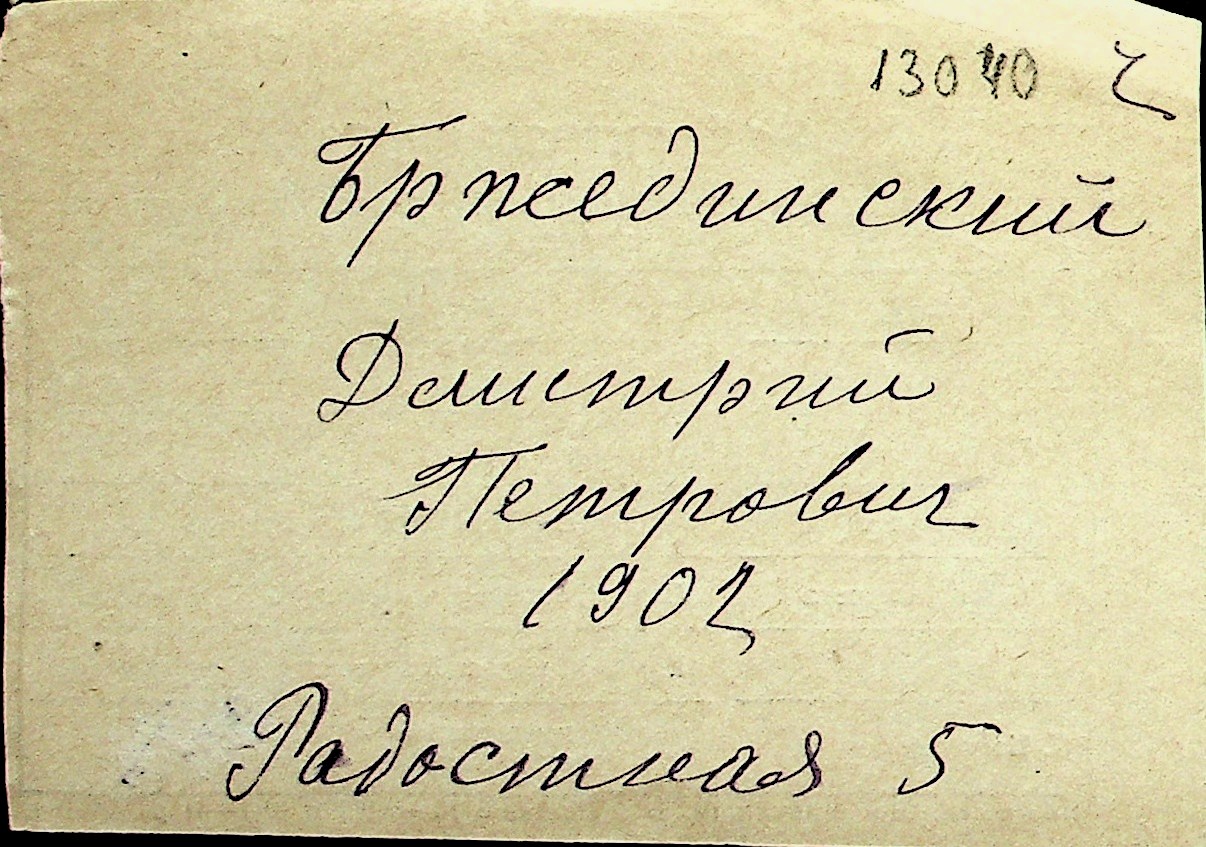 13040 ч
Бржединский
Дмитрий
Петрович
1902
Радостная 5